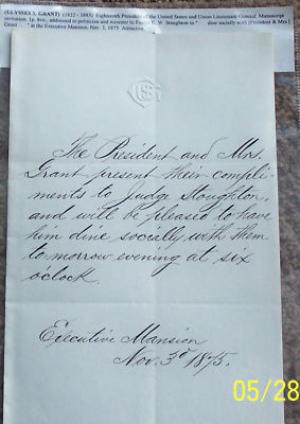 (ULYSSES S. GRANT) (1822 - 1885) Eighteenth President of the United States and Union Lieutenant General. Manuscript
invitation, 1p. 8vo., addressed to politician and minister to Russia E. W. Stoughton to " dine socially with [President & Mrs.]
Grant " at the Executive Mansion, Nov. 3, 1875. Attractive.
The President and Mrs.
Grant present their compli-
ments to Judge Stoughton,
and will be pleased to have
him dine socially with them
to morrow evening at six
o'clock.
Executive Mansion
Nov. 3d 1875.
05/28